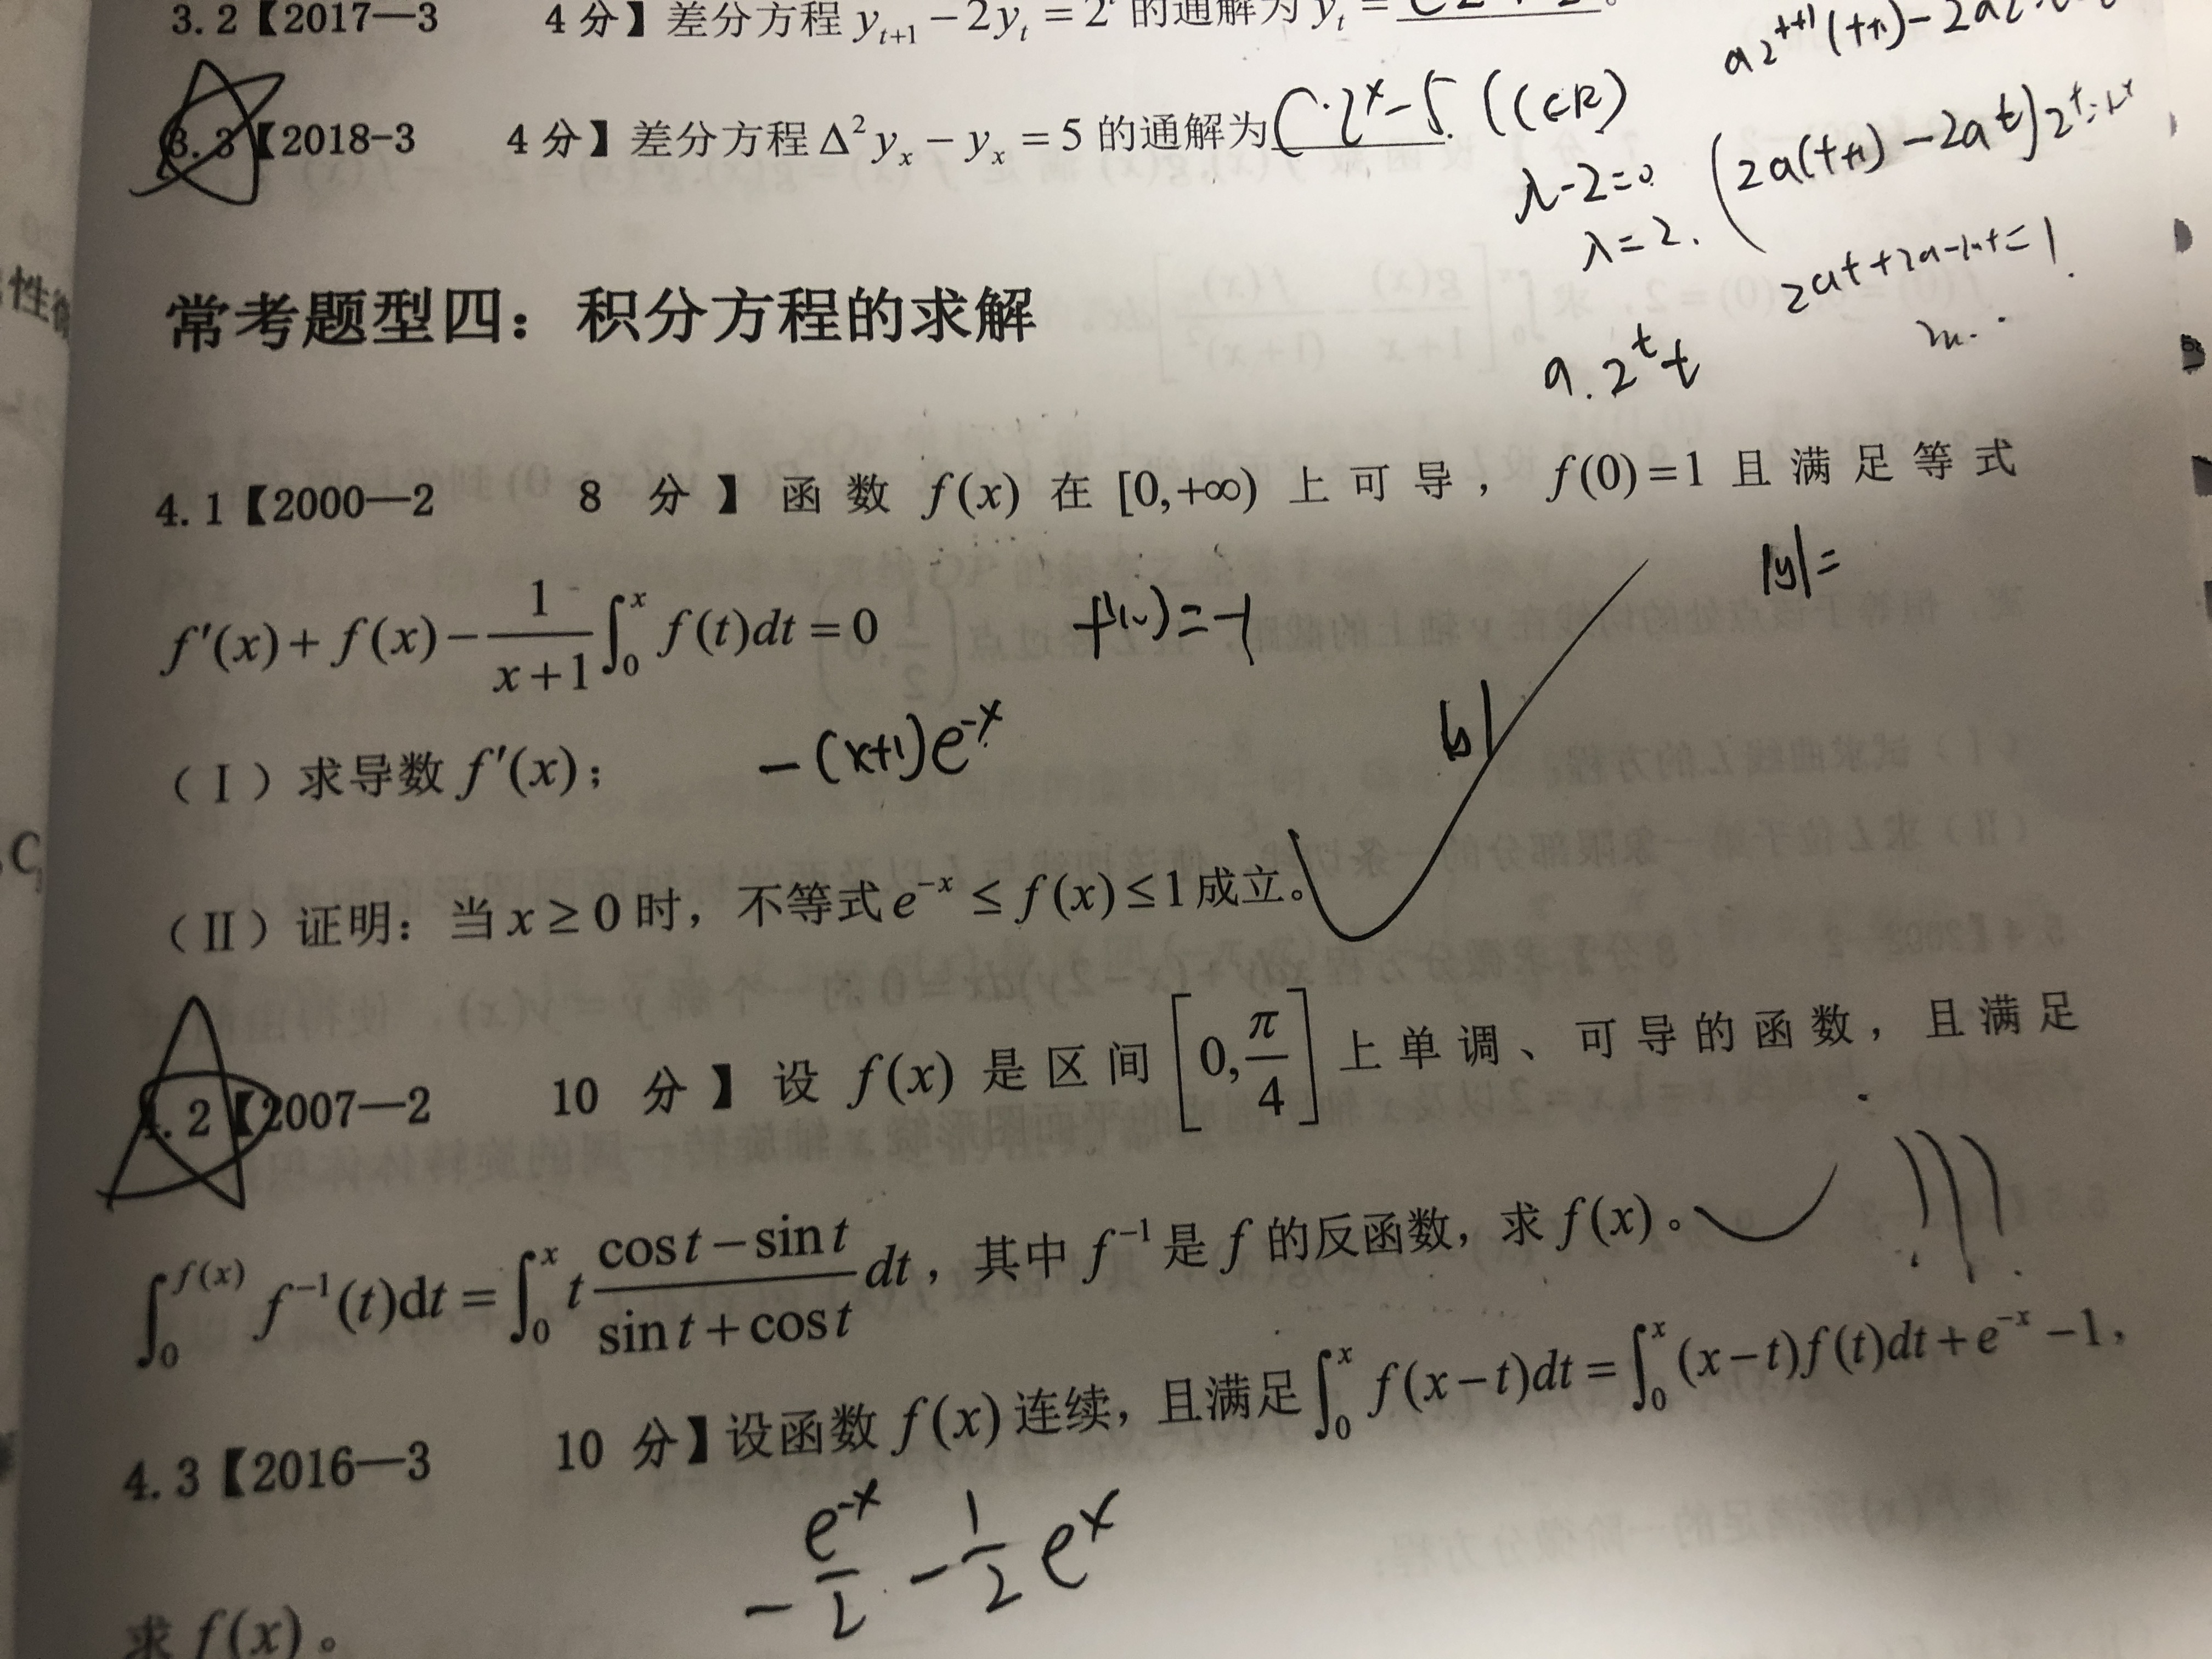 3.2【2017—3 4分】差分方程 y_{t+1} − 2y_t = 2^t 的通解为 y_t =
3.3【2018-3 4分】差分方程 Δ²y_x − y_x = 5 的通解为 C·2^x−5. (C∈R)
a2^{t+1}(t+1)−2a
λ−2=0
λ=2.
(2a(t+1)−2at)2^t=2^t
2at+2a−2at=1
a.2^t t
常考题型四：积分方程的求解
4.1【2000—2 8 分】函数 f(x) 在 [0,+∞) 上可导， f(0)=1 且满足等式
|y|=
f′(x)+f(x)−\frac{1}{x+1}∫_0^x f(t)dt=0
f′(0)=−1
（Ⅰ）求导数 f′(x)；
−(x+1)e^{−x}
（Ⅱ）证明：当 x≥0 时，不等式 e^{−x} ≤ f(x) ≤ 1 成立。
4.2【2007—2 10 分】设 f(x) 是区间 [0,\frac{π}{4}] 上单调、可导的函数，且满足
∫_0^{f(x)} f^{−1}(t)dt = ∫_0^x t\frac{cos t−sin t}{sin t+cos t}dt，其中 f^{−1} 是 f 的反函数，求 f(x)。
4.3【2016—3 10 分】设函数 f(x) 连续，且满足 ∫_0^x f(x−t)dt = ∫_0^x (x−t)f(t)dt+e^{−x}−1，
−\frac{e^{−x}}{2} −\frac{1}{2}e^x
求 f(x)。